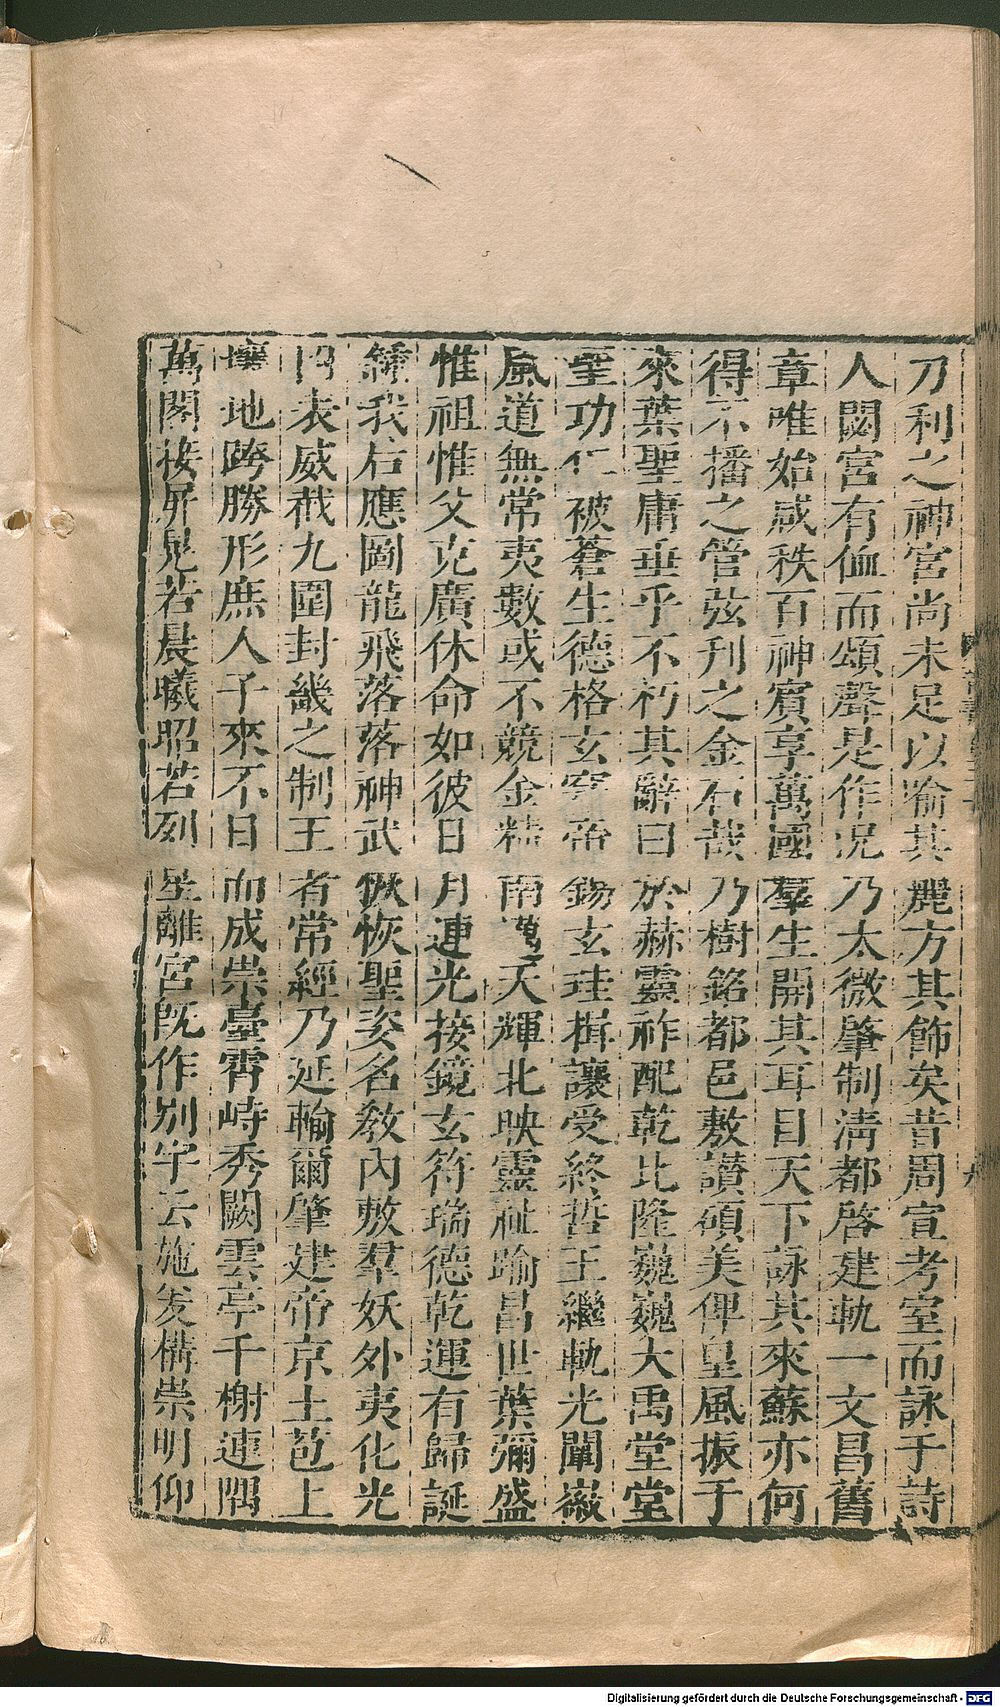 刀利之神宮尚未足以喻其麗方其飾矣昔周宣考室而詠于詩
人閟宮有侐而頌聲是作况乃太微肇制淸都啓建軌一文昌舊
章唯始咸秩百神賓享萬國羣生開其耳目天下詠其來蘇亦何
得不播之管弦刋之金石哉乃樹銘都邑敷讚碩美俾皇風振于
來葉聖庸垂乎不朽其辭曰於赫靈祚配乾比隆巍巍大禹堂堂
聖功仁被蒼生德格玄穹帝錫玄珪揖讓受終哲王繼軌光闡徽
風道無常夷數或不競金精南邁天輝北映靈祉踰昌世葉彌盛
惟祖惟父克廣休命如彼日月連光接鏡玄符瑞德乾運有歸誕
鍾我后應圖龍飛落落神武恢恢聖姿名敎內敷羣妖外夷化光
四表威截九圍封畿之制王者常經乃延輸爾肇建帝京土苞上
壤地跨勝形庶人子來不日而成崇臺霄峙秀闕雲亭千榭連隅
萬閣接屏晃若晨曦昭若列星離宮旣作別宇云施爰構崇明仰
Digitalisierung gefördert durch die Deutsche Forschungsgemeinschaft - DFG